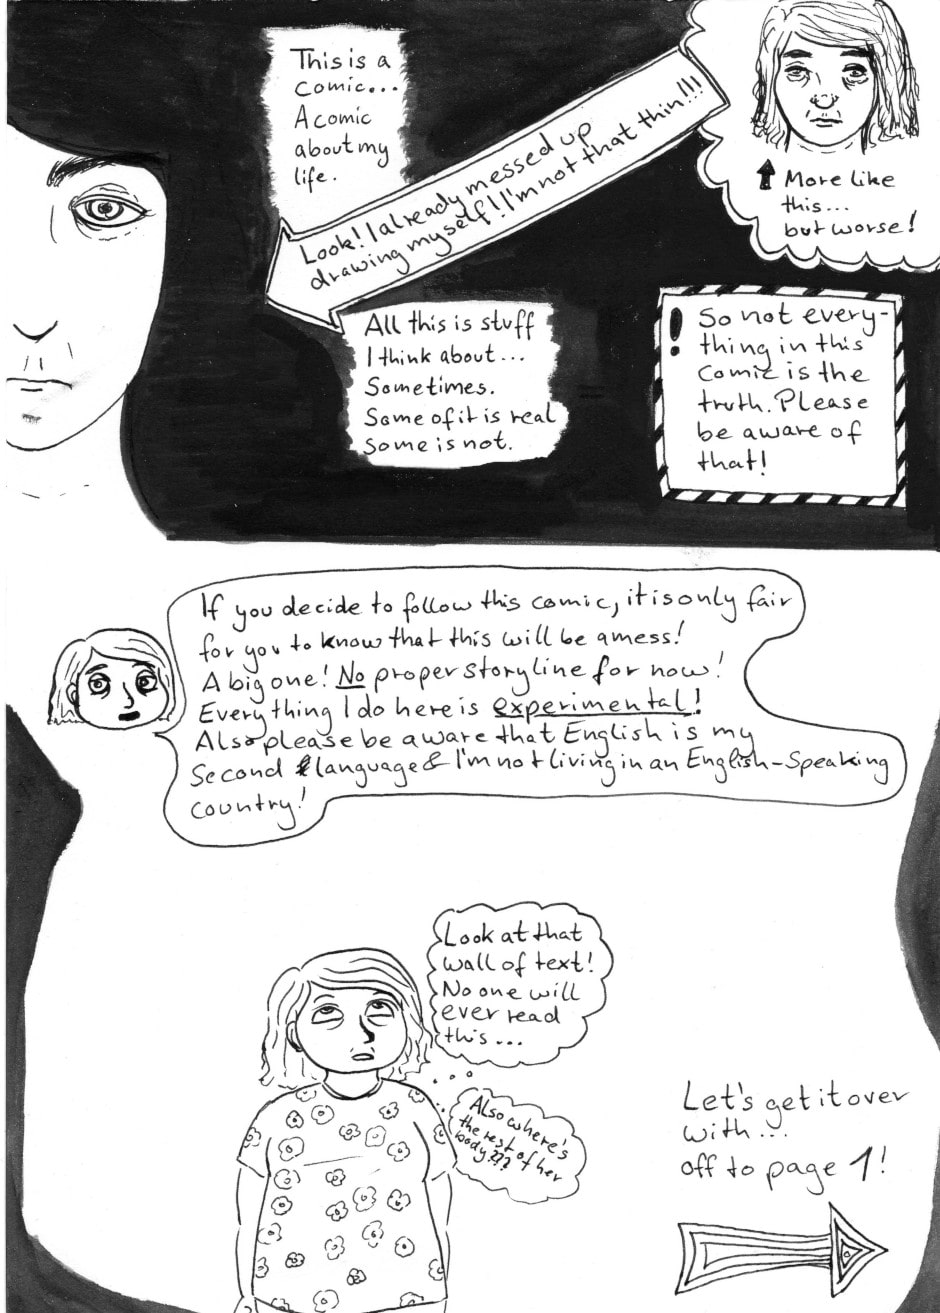 This is a
comic...
A comic
about my
life.
Look! I already messed up
drawing myself! I'm not that thin!!!
More like
this...
but worse!
All this is stuff
I think about...
Sometimes.
Some of it is real
Some is not.
! So not every-
thing in this
comic is the
truth. Please
be aware of
that!
If you decide to follow this comic, it is only fair
for you to know that this will be a mess!
A big one! No proper storyline for now!
Everything I do here is experimental!
Also please be aware that English is my
Second language & I'm not living in an English-Speaking
country!
Look at that
wall of text!
No one will
ever read
this...
Also where's
the rest of her
body???
Let's get it over
with...
off to page 1!